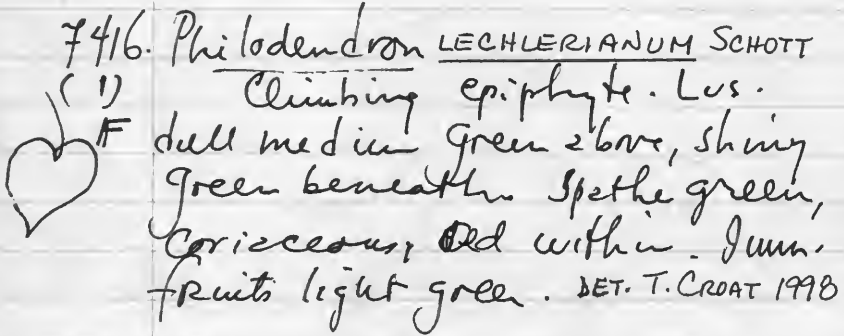 7416. Philodendron LECHLERIANUM SCHOTT
(1) Climbing epiphyte. Lvs.
F dull medium green above, shiny
green beneath. Spathe green,
coriaceous, Red within. Imm.
fruits light green. DET. T. CROAT 1998